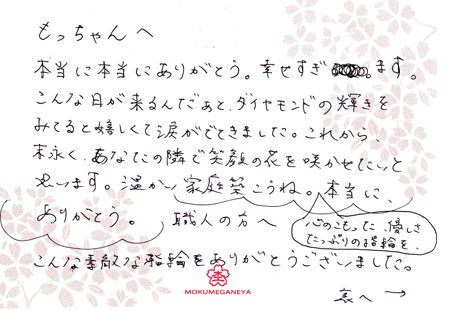 もっちゃんへ
本当に本当にありがとう。幸せすぎます。
こんな日が来るんだぁと、ダイヤモンドの輝きを
みてると嬉しくて涙がでてきました。これから、
末永く、あなたの隣で笑顔の花を咲かせたいと
思います。温かい家庭築こうね。本当に、
ありがとう。 職人の方へ
心のこもった、優しさ
たっぷりの指輪を、
こんな素敵な指輪をありがとうございました。
MOKUMEGANEYA
裏へ→